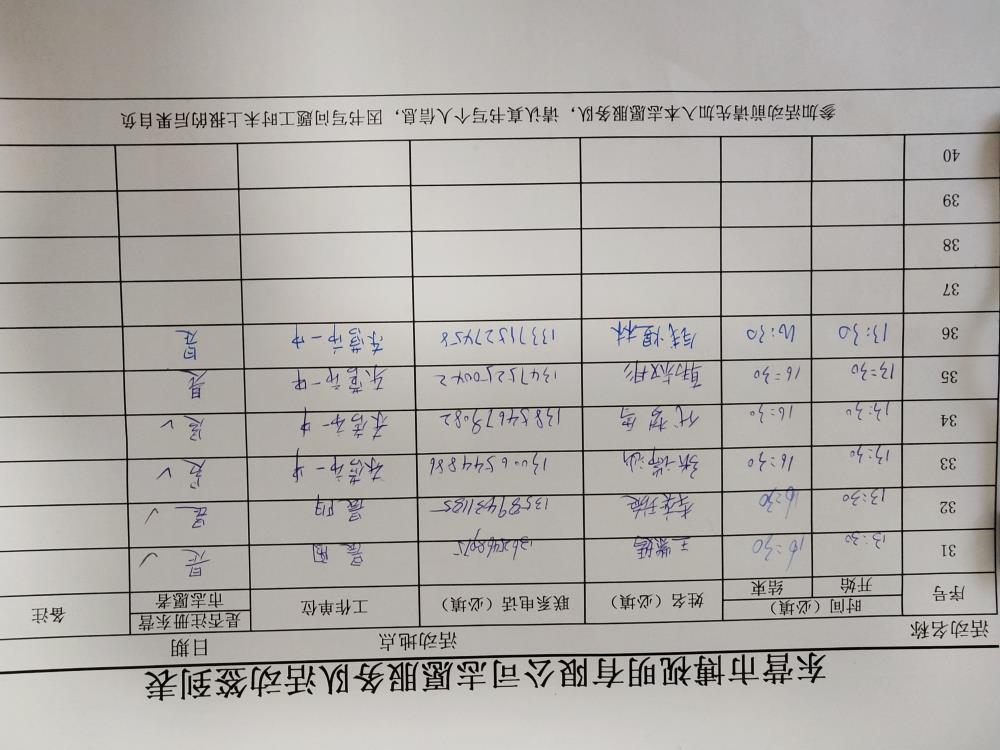 东营市博视明有限公司志愿服务队活动签到表
活动名称 活动地点 日期
序号 时间（必填） 姓名（必填） 联系电话（必填） 工作单位 是否注册东营市志愿者 备注
开始 结束
31 13:30 16:30 是 ✓
32 13:30 16:30 13589431185 是 ✓
33 13:30 16:30 13006544886 东营市一中 是 ✓
34 13:30 16:30 13854679082 东营市一中 是 ✓
35 13:30 16:30 13475225042 东营市一中 是
36 13:30 16:30 13371527458 东营市一中 是
37
38
39
40
参加活动前请先加入本志愿服务队，请认真书写个人信息，因书写问题工时未上报的后果自负